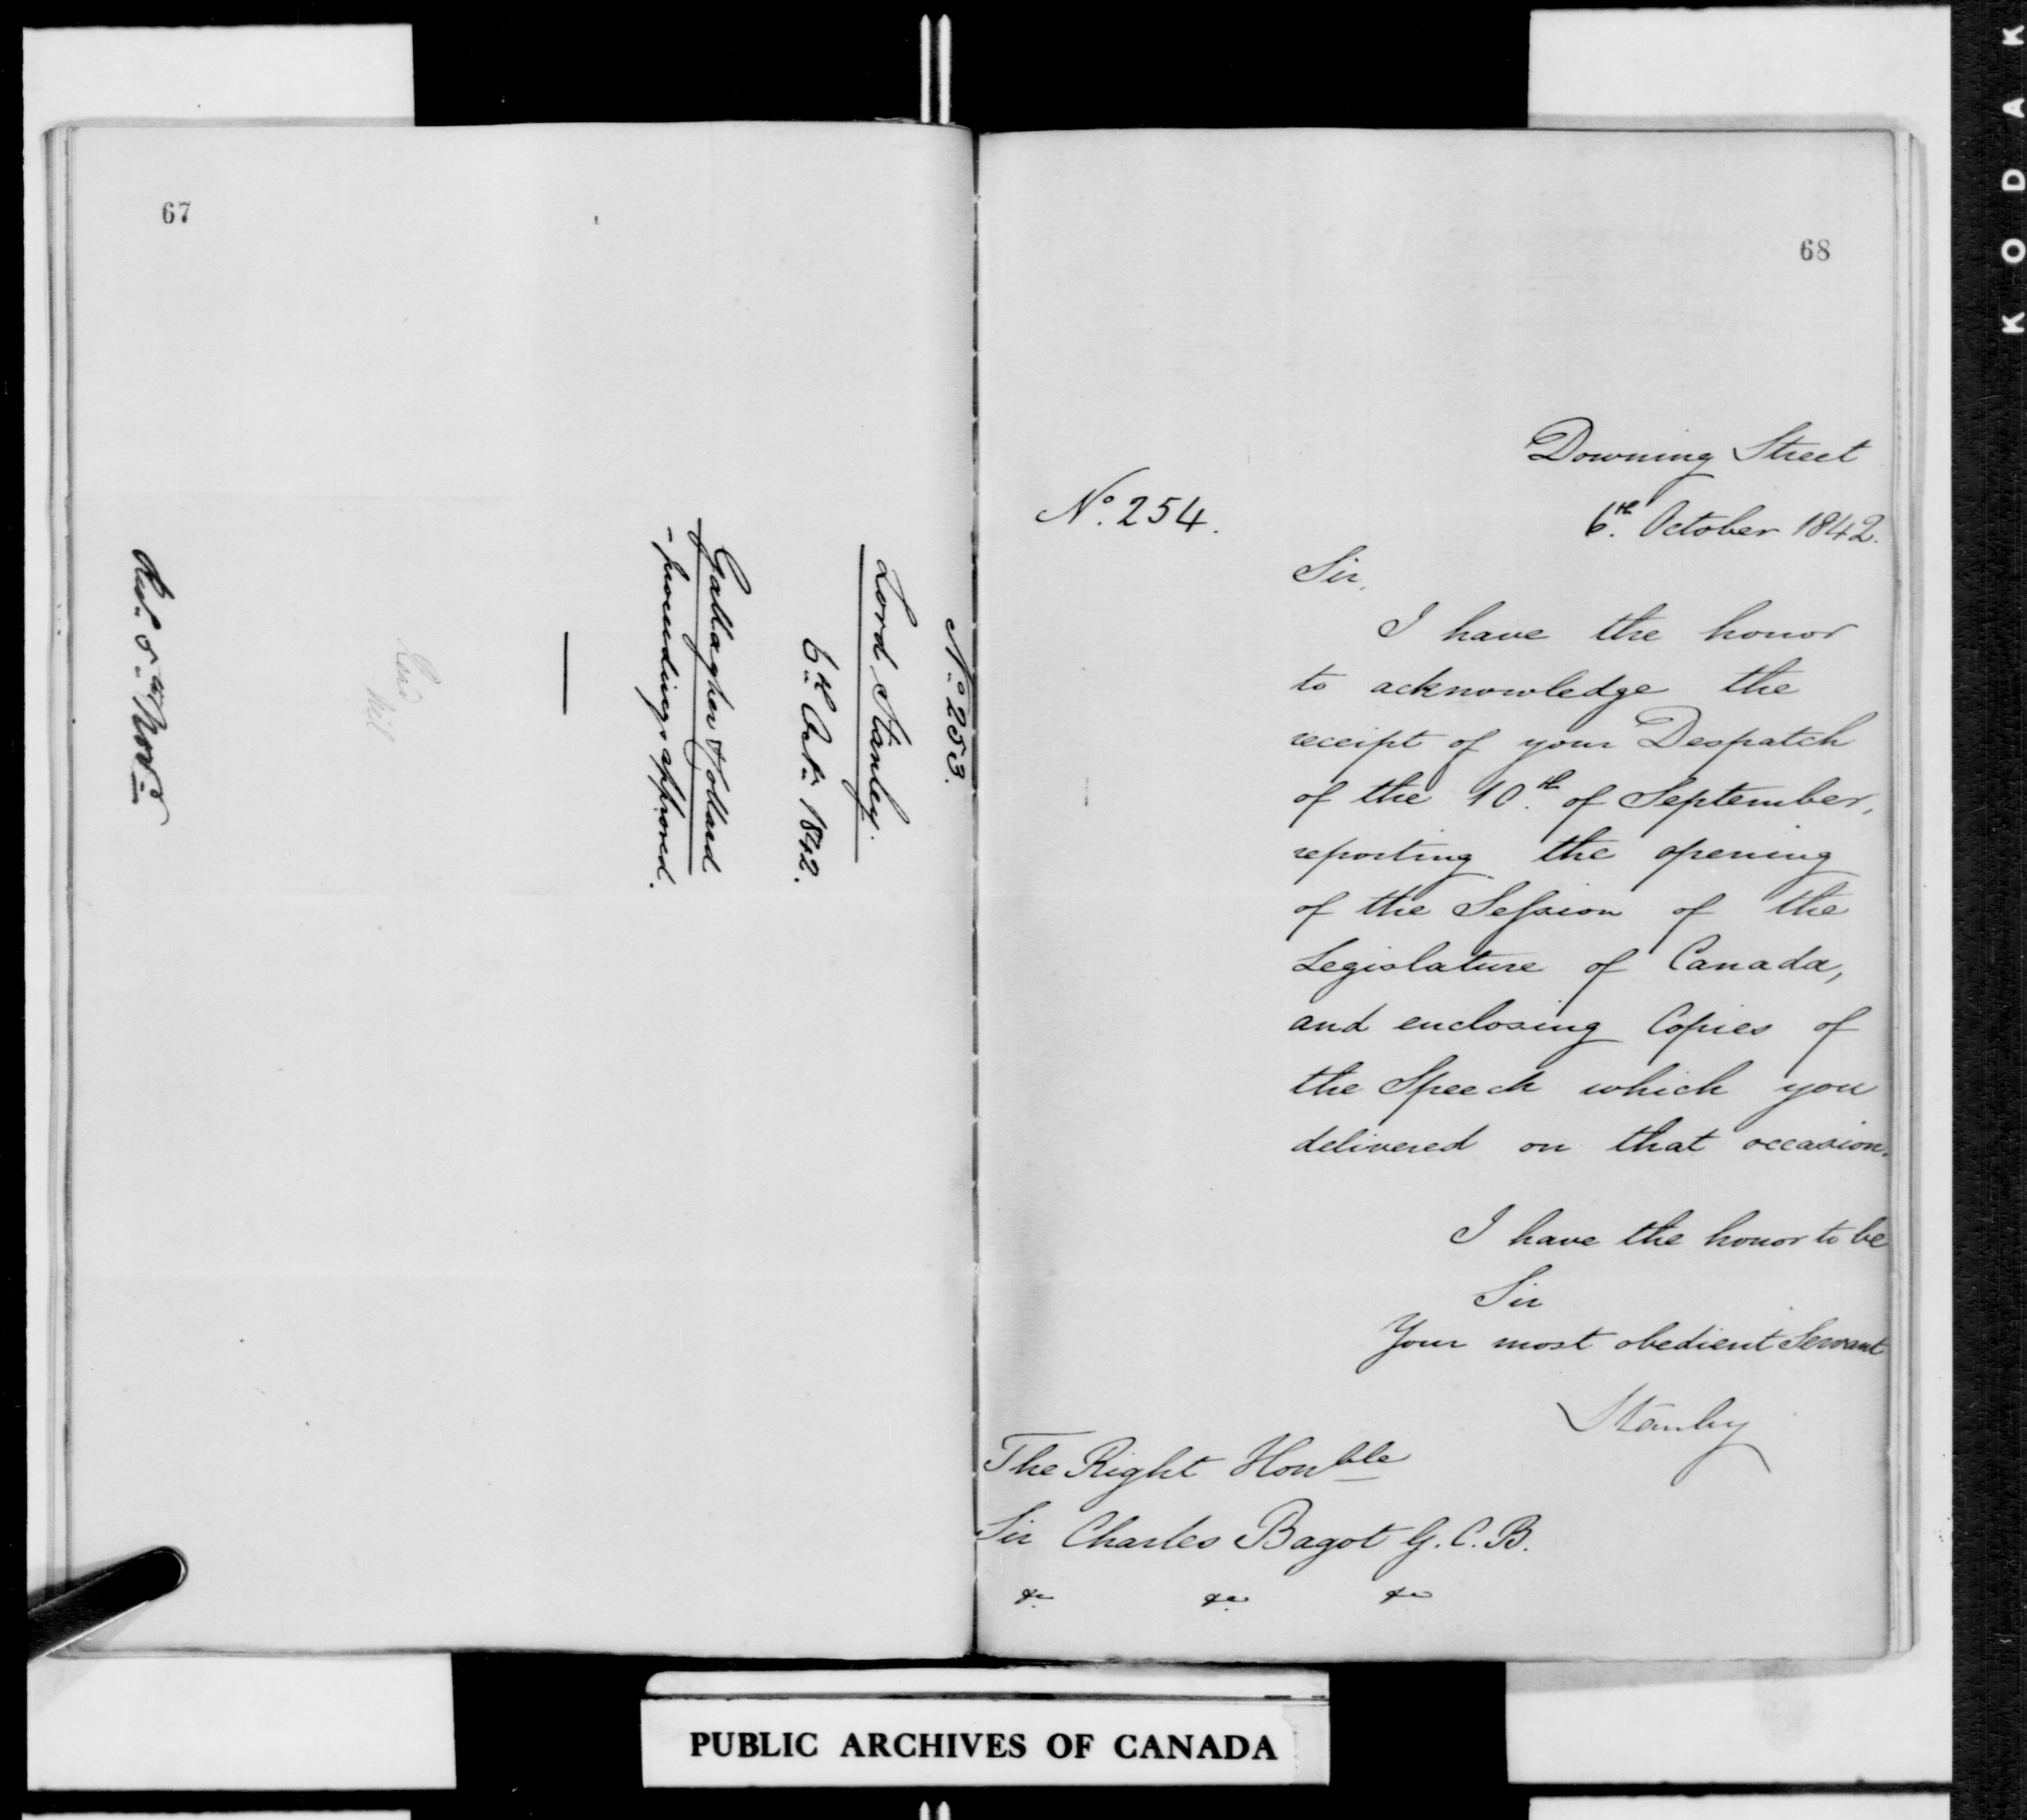 67
No. 253.
Lord Stanley.
6th Octr. 1842.
Gallagher & Pollard
- proceedings approved.
Recd. 5th Novr.
68
Downing Street
No. 254.
6th. October 1842.
Sir,
I have the honor
to acknowledge the
receipt of your Despatch
of the 10th. of September,
reporting the opening
of the Session of the
Legislature of Canada,
and enclosing Copies of
the Speech which you
delivered on that occasion.
I have the honor to be
Sir
Your most obedient Servant
Stanley
The Right Honble
Sir Charles Bagot G.C.B.
&c. &c. &c
PUBLIC ARCHIVES OF CANADA
KODAK